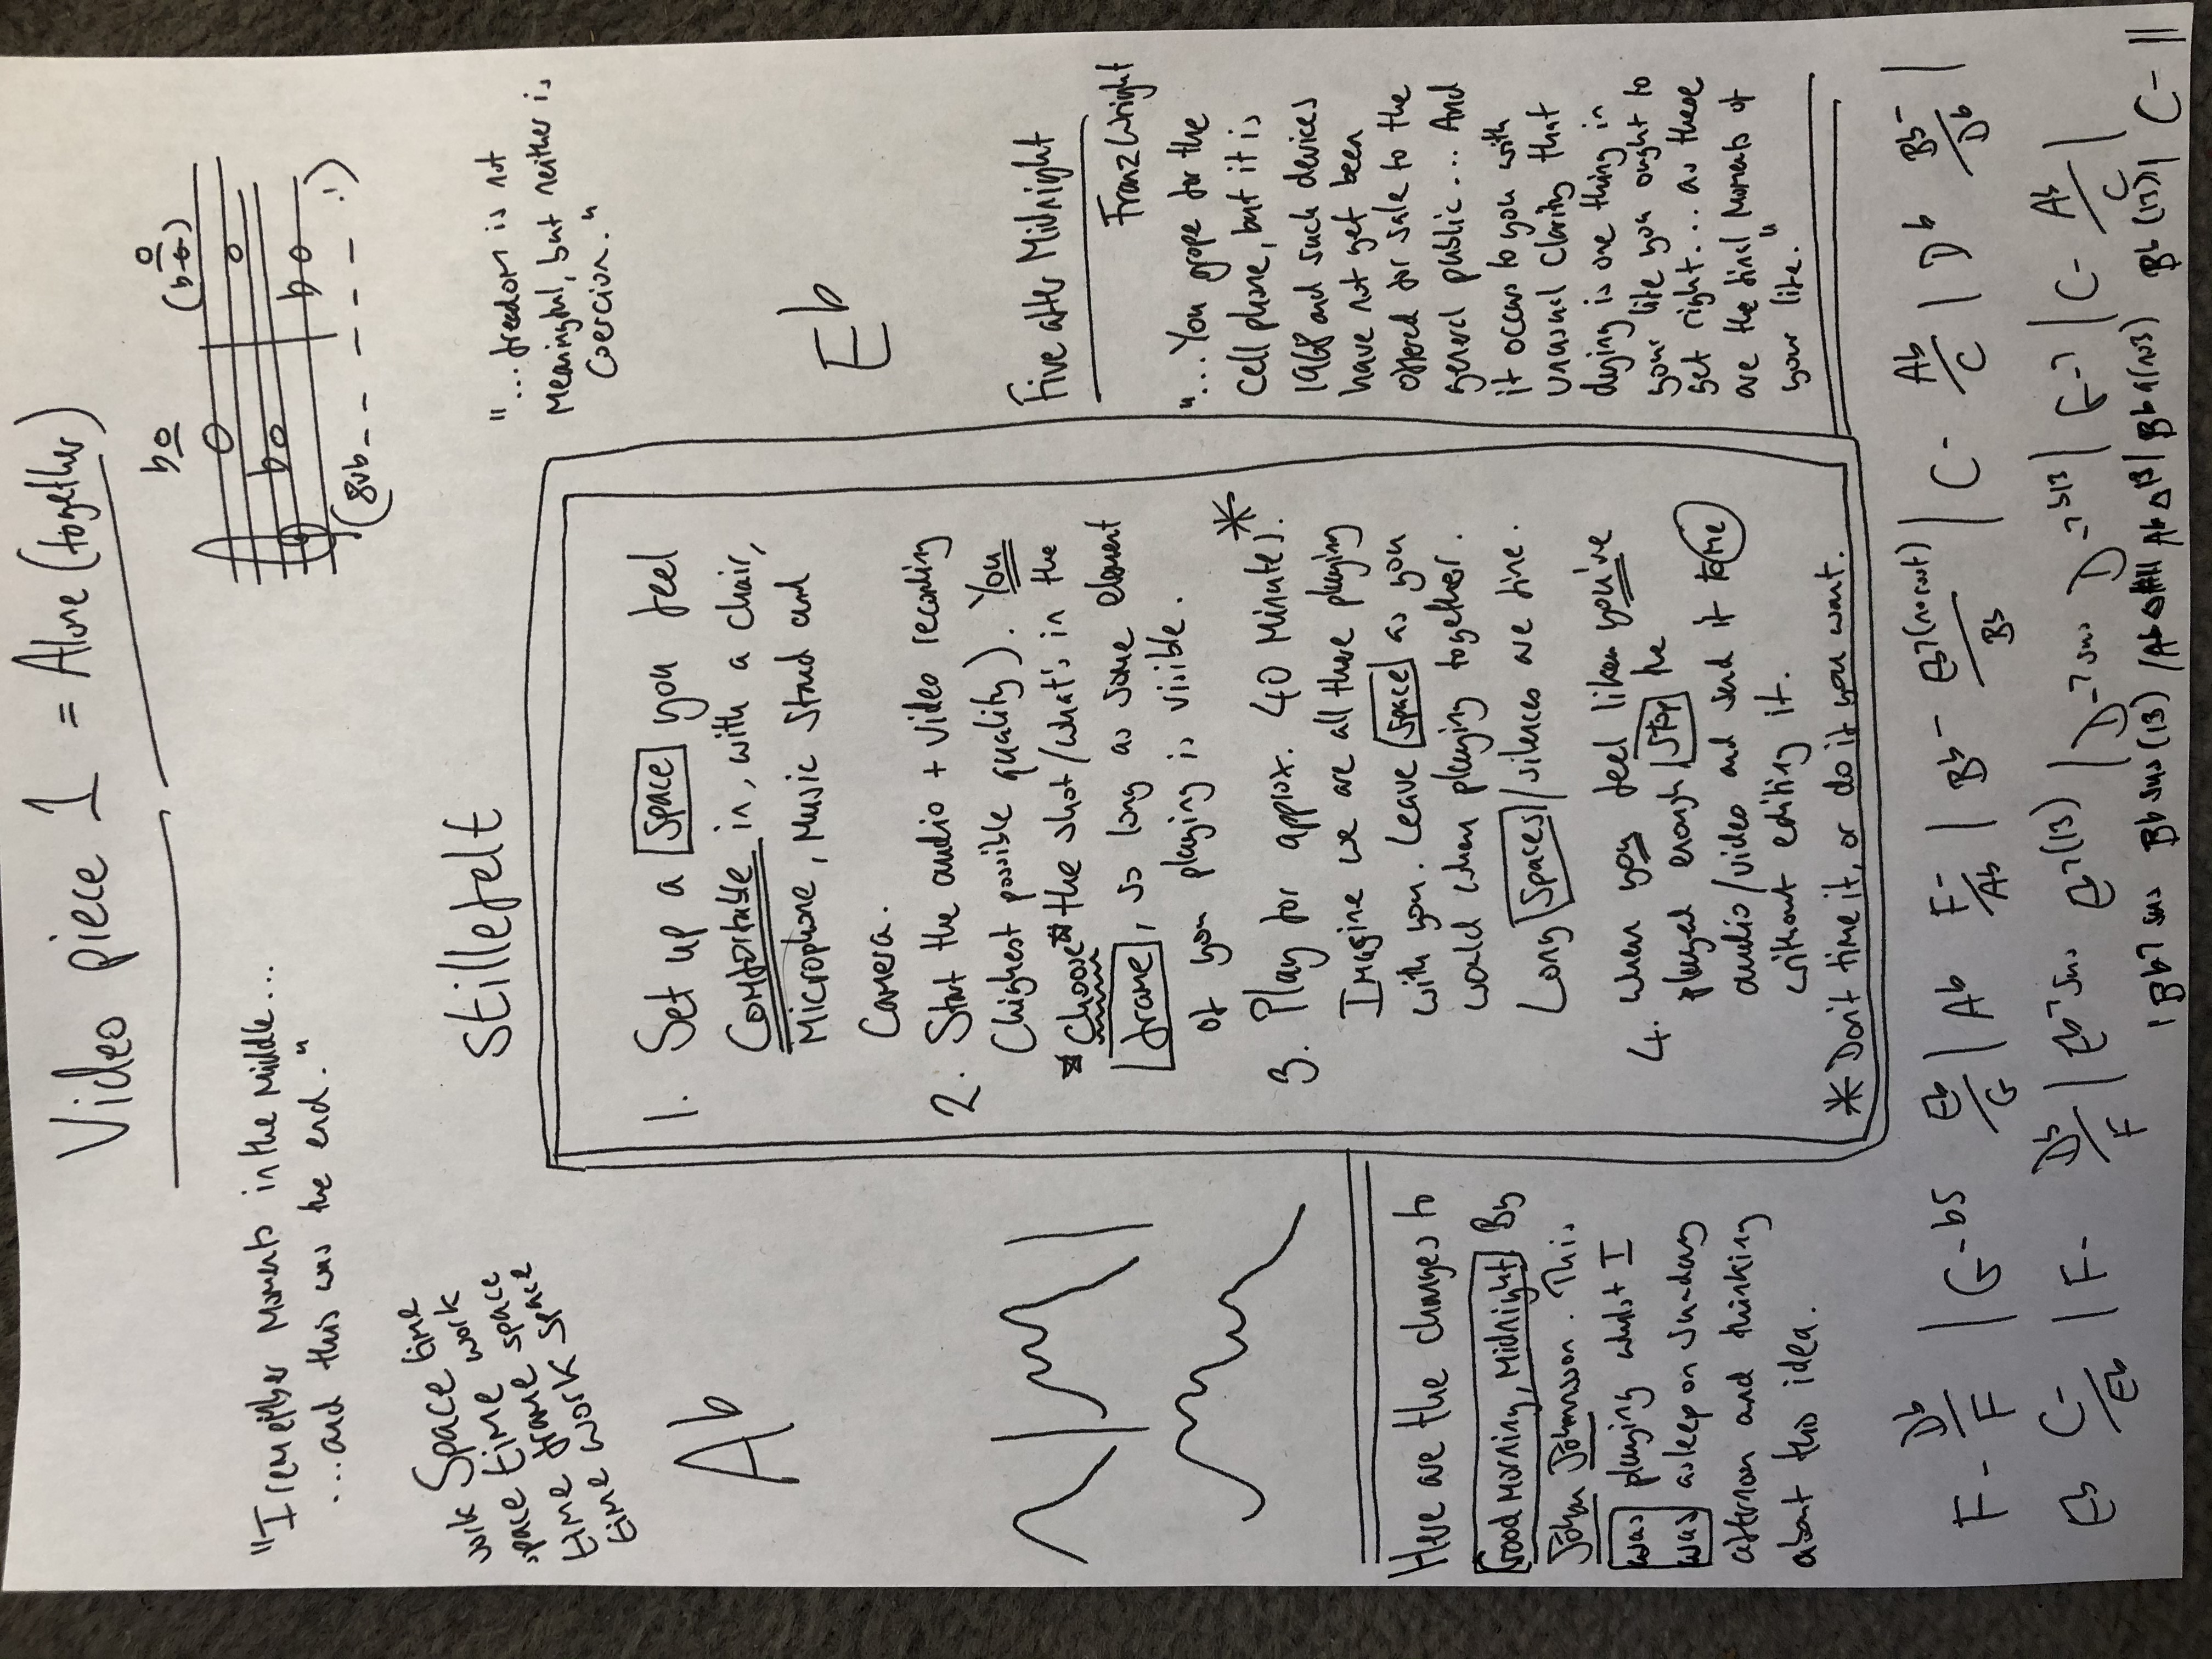 Video piece 1 = Alone (together)
(8vb - - - - - - !)
"I remember Moments in the Middle...
...and this was the end."
"...freedom is not
Meaningful, but neither is
Coercion."
Stillefelt
work Space time
space time work
space time space
time frame space
time work space
time
Ab
Eb
1. Set up a Space you feel
Comfortable in, with a chair,
Microphone, Music Stand and
Camera.
2. Start the audio + video recording
(highest possible quality). You
Choose the shot/what's in the
frame, so long as some element
of you playing is visible.
3. Play for approx. 40 Minutes. *
Imagine we are all there playing
with you. Leave Space as you
would when playing together.
Long Spaces/silences are fine.
4. When you feel like you've
played enough Stop the
audio/video and send it to me
without editing it.
* Don't time it, or do if you want.
Five after Midnight
Franz Wright
"...You grope for the
cell phone, but it is
1968 and such devices
have not yet been
offered for sale to the
general public... And
it occurs to you with
unusual clarity that
dying is one thing in
your life you ought to
get right... as these
are the final Moments of
your life."
Here are the changes to
Good Morning, Midnight By
Johan Johannson. This
was playing whilst I
was asleep on Sunday
afternoon and thinking
about this idea.
F- Db/F | G-b5 Eb/G | Ab F-/Ab | Bb- Eb7(no root)/Bb | C- Ab/C | Db Bb-/Db |
Eb C-/Eb | F- Db/F | Eb7sus Eb7(13) | D-7sus D-7b13 | G-7 | C- Ab/C |
| Bb7sus Bbsus(13) | Ab∆ Ab∆13 | Bb9(no3) Bb(13) | C- ||